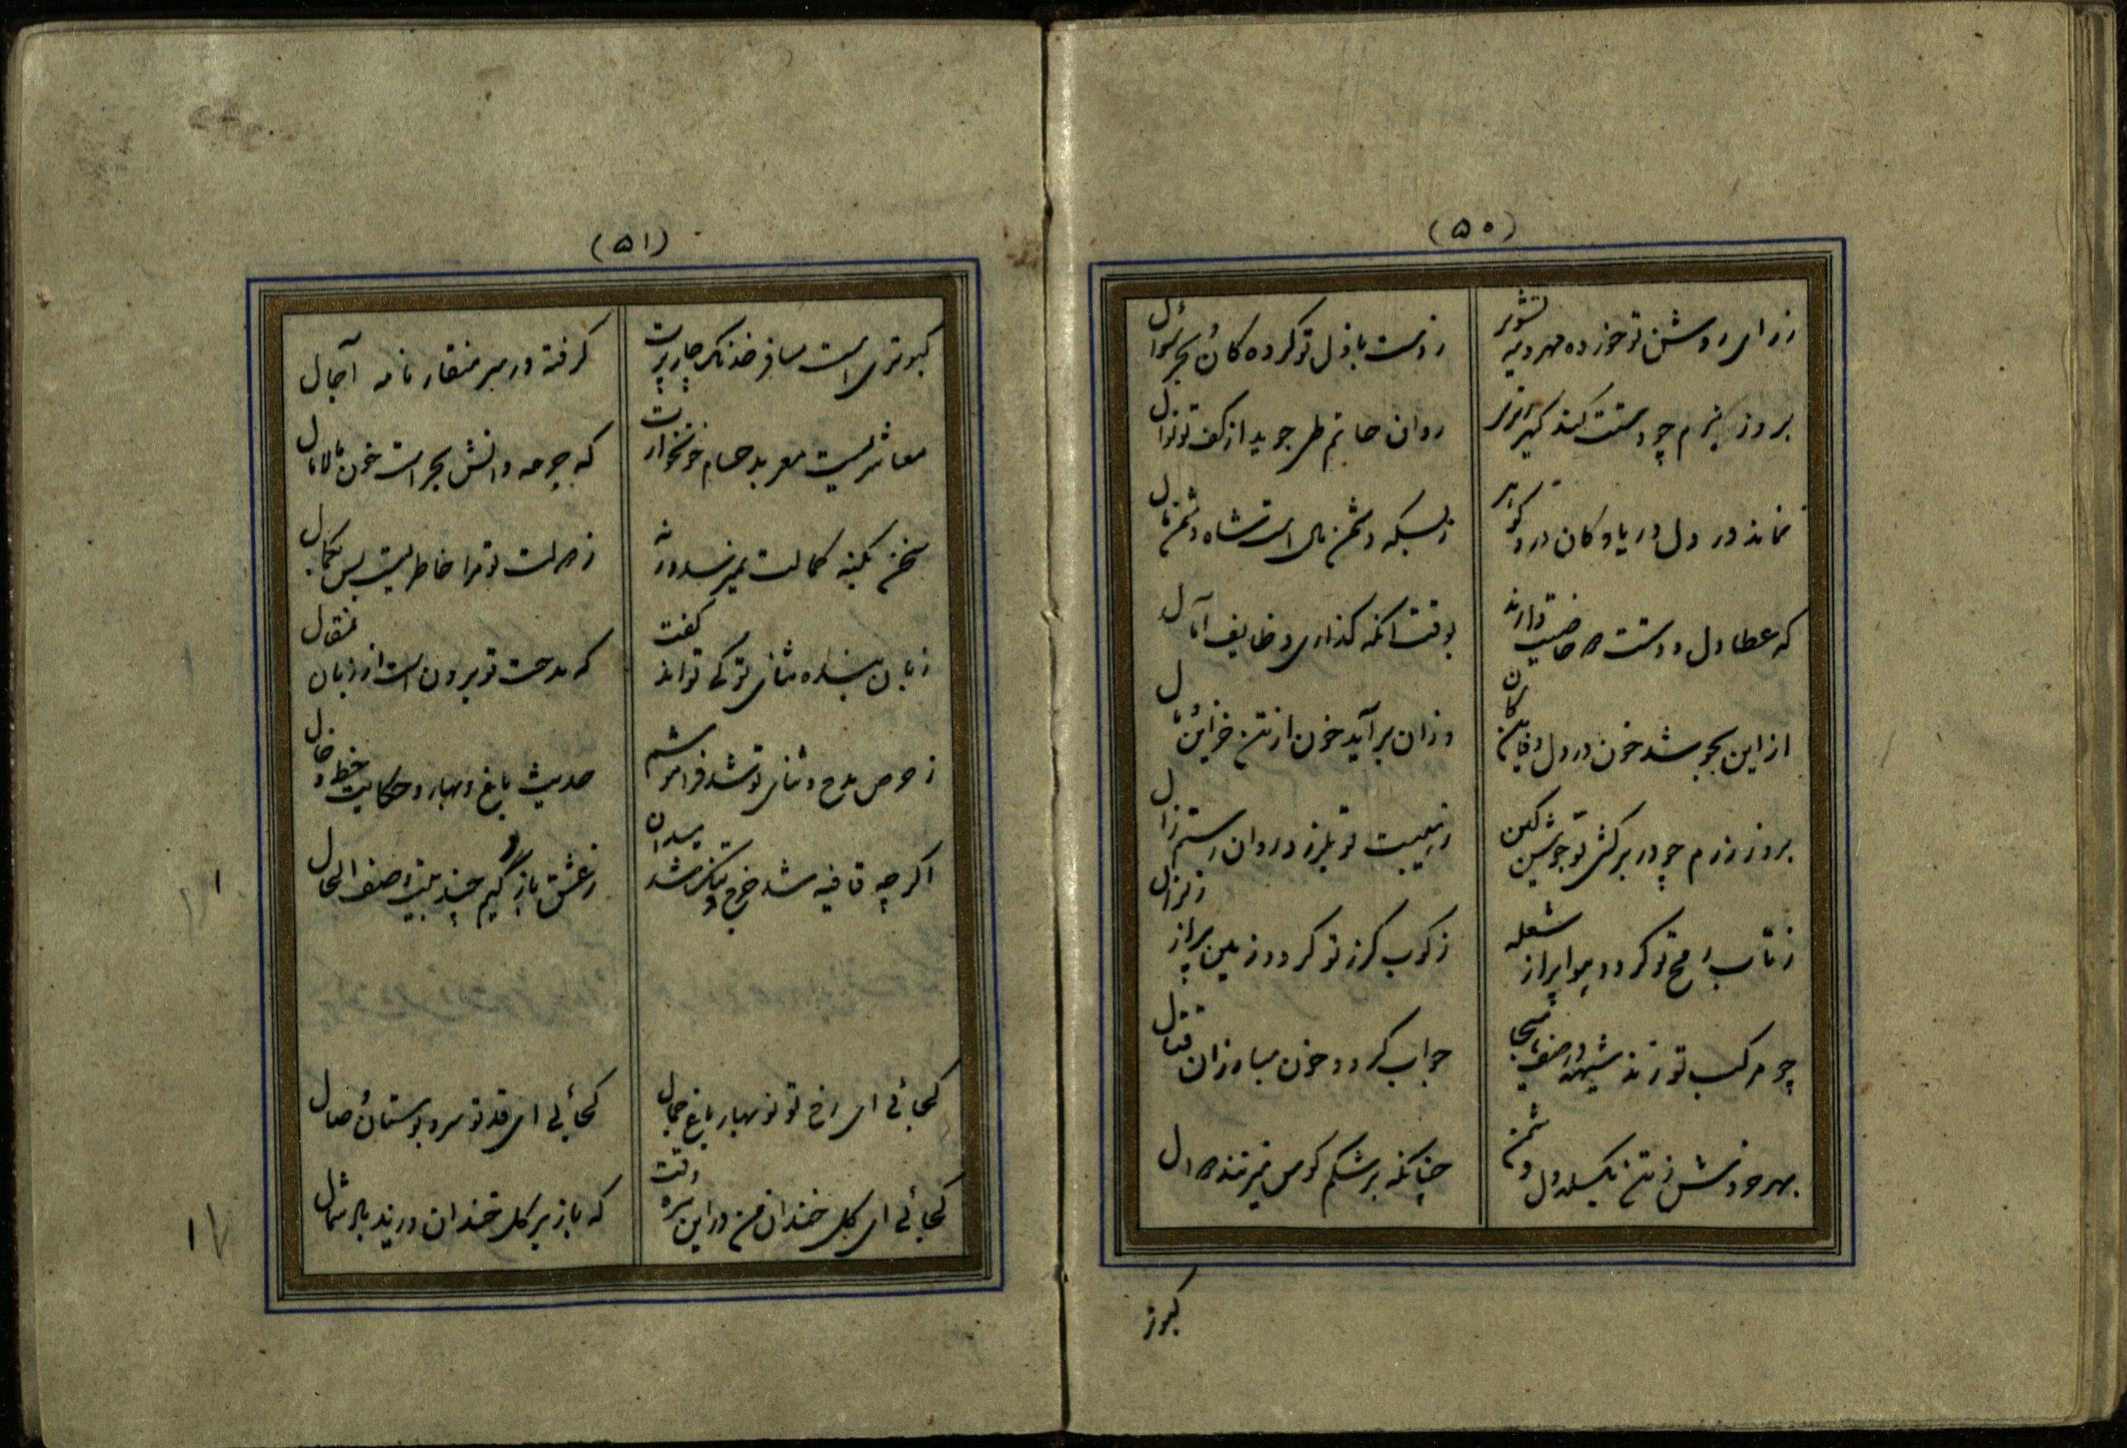 (۵۰)
ز رای روشن تو خورده مهر و مه تشویر
ز دست باذل تو کرده کان و بحر سؤال
بروز بزم چو دستت کند
روان حاتم طی جوید از کف تو نوال
نماند در دل دریا و کان در و گوهر
ز بسکه دشمن مال است شاه دشمن مال
که عطا دل و دستت
بوقت آنکه گذاری وظایف آمال
از این بجوشد خون در دل دفاین کان
وزان برآید خون از تن خزاین مال
بروز رزم چو در بر کشی تو جوشن کین
ز هیبت تو بلرزد روان رستم زال
ز تاب رمح تو گردد هوا پر از شعله
ز کوب گرز تو گردد زمین پر از زلزال
چو مرکب تو زند شیهه در صف هیجا
چو آب گردد خون مبارزان قتال
بهر خروشش ز تن بگسلد دل دشمن
چنانکه بر شکم کوس میزنند دوال
کبوتر
(۵۱)
کبوتری است مسافر خدنگ چارپرت
گرفته در سر منقار نامه آجال
معاشریست معربد حسام خونخوارت
که جرعه دانش بحر است خون مالامال
سخن بکنه کمالت نمیرسد ورنه
ز دولت تو مرا خاطریست بس بکمال
زبان ستاره ثنای تو کی تواند گفت
که مدحت تو برون است از زبان مقال
ز حرص مدح و ثنای تو شد فراموشم
حدیث باغ و بهار و حکایت خط و خال
اگرچه قافیه شد خرج و تنگ شد میدان
ز عشق باز گویم چند بیتی صف الحال
کجائی ای رخ تو نوبهار باغ جمال
کجائی ای قد تو سرو بوستان وصال
کجائی ای گل خندان من در این سره وقت
که باز بر گل خندان وزید باد شمال